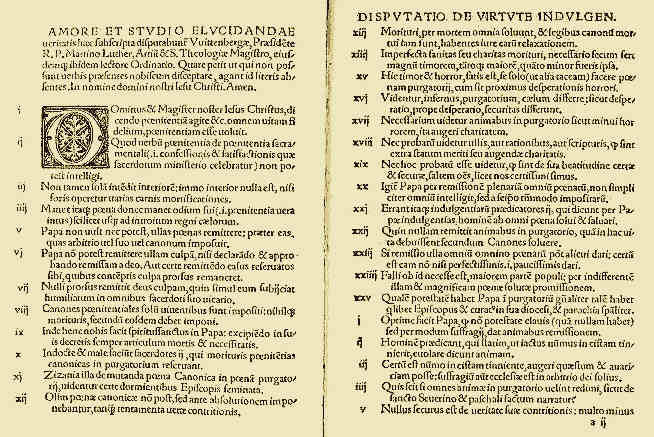 AMORE ET STVDIO ELVCIDANDAE
ueritatis hæc subscripta disputabunť Vuittenbergæ, Præsidẽte
R. P. Martino Luther, Artiũ & S. Theologiæ Magistro, eius-
demq̃ ibidem lectore Ordinario. Quare petit ut qui non pos-
sunt uerbis præsentes nobiscum disceptare, agant id literis ab-
sentes. In nomine domini nostri Iesu Christi. Amen.
i DOminus & Magister noster Iesus Christus, di-
cendo pœnitentiã agite &c. omnem uitam fi-
delium, pœnitentiam esse uoluit.
ij Quod uerbũ pœnitentia de pœnitentia sacra-
mentali (.i. confessiõis & satisfactiõis quæ
sacerdotum ministerio celebratur) non po-
test intelligi.
iij Non tamen solã intẽdit interiorẽ: immo interior nulla est, nisi
foris operetur uarias carnis mortificationes.
iiij Manet itaq̃ pœna donec manet odium sui (.i. pœnitentia uera
intus) scilicet usq̃ ad introitum regni cœlorum.
v Papa non uult nec potest, ullas pœnas remittere: præter eas,
quas arbitrio uel suo uel canonum imposuit.
vj Papa nõ potest remittere ullam culpã, nisi declarãdo & appro-
bando remissam a deo. Aut certe remittẽdo casus reseruatos
sibi, quibus contẽptis culpa prorsus remaneret.
vij Nulli prorsus remittit deus culpam, quin simul eum subijciat
humiliatum in omnibus sacerdoti suo uicario.
viij Canones pœnitentiales solũ uiuentibus sunt impositi: nihilq̃
morituris, secundũ eosdem debet imponi.
ix Inde bene nobis facit spiritussanctus in Papa: excipiẽdo in su-
is decretis semper articulum mortis & necessitatis.
x Indocte & male faciũt sacerdotes ij, qui morituris pœnitẽtias
canonicas in purgatorium reseruant.
xj Zizania illa de mutanda pœna Canonica in pœnã purgato-
rij, uidentur certe dormientibus Episcopis seminata.
xij Olim pœnæ canonicæ nõ post, sed ante absolutionem impo-
nebantur, tanq̃ tentamenta ueræ contritionis.
DISPVTATIO DE VIRTVTE INDVLGEN.
xiij Morituri, per mortem omnia soluunt, & legibus canonũ mor-
tui iam sunt, habentes iure earũ relaxationem.
xiiij Imperfecta sanitas seu charitas morituri, necessario secum fert
magnũ timorem, tãtoq̃ maiorẽ, quãto minor fuerit ipsa.
xv Hic timor & horror, satis est, se solo (ut alia taceam) facere pœ-
nam purgatorij, cum sit proximus desperationis horrori.
xvj Videntur, infernus, purgatorium, cælum differre: sicut despe-
ratio, prope desperatio, securitas differunt.
xvij Necessarium uidetur animabus in purgatorio sicut minui hor-
rorem, ita augeri charitatem.
xviij Nec probatũ uidetur ullis, aut rationibus, aut scripturis, q̃ sint
extra statum meriti seu augendæ charitatis.
xix Nec hoc probatũ esse uidetur, q̃ sint de sua beatitudine certæ
& securæ, saltem oẽs, licet nos certissimi simus.
xx Igiť Papa per remissionẽ plenariã omniũ pœnarũ, non simpli
citer omniũ intelligit, sed a seipo tm̃modo impositarũ.
xxj Errant itaq̃ indulgentiarũ prædicatores ij, qui dicunt per Pa-
pæ indulgentias, hominẽ ab omni pœna solui & saluari.
xxij Quin nullam remittit animabus in purgatorio, quã in hac ui-
ta debuissent secundum Canones soluere.
xxiij Si remissio ulla omniũ omnino pœnarũ põt alicui dari: certũ
est eam nõ nisi perfectissimis .i. paucissimis dari.
xxiiij Falli ob id necesse est, maiorem partẽ populi: per indifferentẽ
illam & magnificam pœnæ solutæ promissionem.
xxv Qualẽ potestatẽ habet Papa ĩ purgatoriũ gñaliter talẽ habet
quilibet Episcopus & curatꝰ in sua diocesi, & parochia spãliter.
i Optime facit Papa, q̃ nõ potestate clauis (quã nullam habet)
sed per modum suffragij, dat animabus remissionem.
ij Hominẽ prædicant, qui statim, ut iactus nũmus in cistam tin-
nierit, euolare dicunt animam.
iij Certũ est nũmo in cistam tinniente, augeri quæstum & auari-
ciam posse: suffragiũ aũt ecclesiæ est in arbitrio dei solius.
iiij Quis scit si omnes animæ in purgatorio uelint redimi, sicut de
sancto Seuerino & paschali factum narratur.
v Nullus securus est de ueritate suæ contritionis: multo minus
a ij